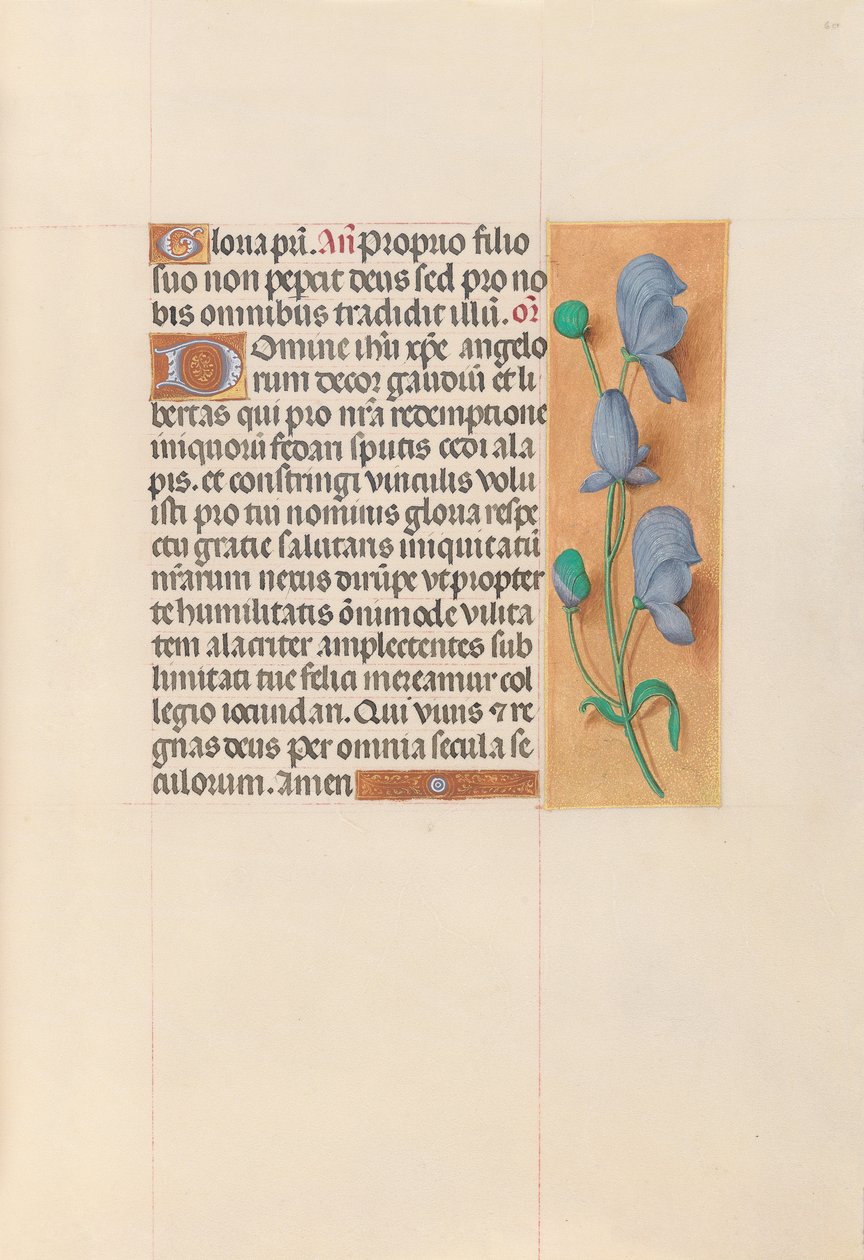 60
Gloria pr̄i. An̄ Proprio filio
suo non pepcit deus sed pro no
bis omnibus tradidit illū. or̄
Domine ihū xp̄e angelo
rum decor gaudiū et li
bertas qui pro nr̄a redemptione
iniquorū fedari sputis cedi ala
pis. et constringi vinculis volu
isti pro tui nominis gloria respe
ctu gratie salutaris iniquitatū
nr̄arum nexus dirūpe vt propter
te humilitatis ōnimode vilita
tem alacriter amplectentes sub
limitati tue felici mereamur col
legio iocundari. Qui viuis ⁊ re
gnas deus per omnia secula se
culorum. Amen